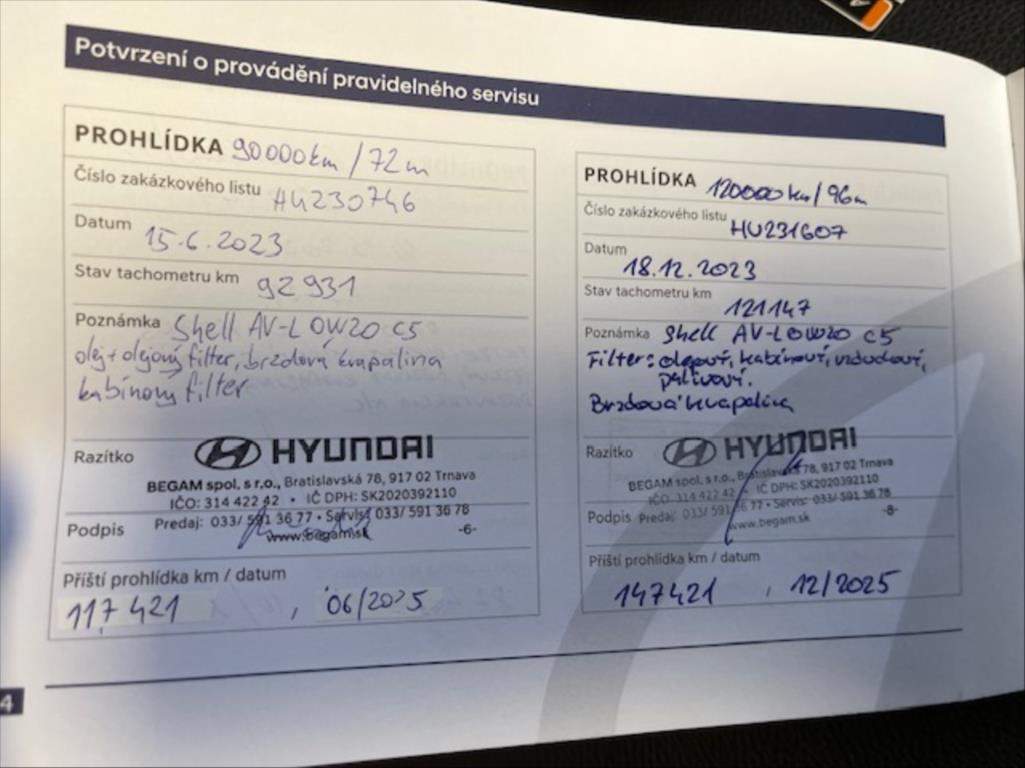 Potvrzení o provádění pravidelného servisu
PROHLÍDKA 90000km/72m
Číslo zakázkového listu HU230746
Datum 15.6.2023
Stav tachometru km 92931
Poznámka Shell AV-L 0W20 C5
olej+olejový filter, brzdová kvapalina
kabínový filter
Razítko
HYUNDAI
BEGAM spol. s r.o., Bratislavská 78, 917 02 Trnava
IČO: 314 422 42 • IČ DPH: SK2020392110
Predaj: 033/ 591 36 77 • Servis: 033/ 591 36 78
Podpis www.begam.sk -6-
Příští prohlídka km / datum
117421, 06/2025
PROHLÍDKA 120000km/96m
Číslo zakázkového listu HU231607
Datum 18.12.2023
Stav tachometru km 121147
Poznámka Shell AV-L 0W20 C5
Filter: olejový, kabínový, vzduchový,
palivový.
Brzdová kvapalina
Razítko
HYUNDAI
BEGAM spol. s r.o., Bratislavská 78, 917 02 Trnava
IČO: 314 422 42 • IČ DPH: SK2020392110
Podpis Predaj: 033/ 591 36 77 • Servis: 033/ 591 36 78
www.begam.sk -8-
Příští prohlídka km / datum
147421, 12/2025
4